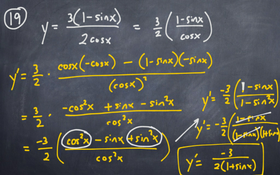 19
y = 3(1-sinx) / 2cosx = 3/2 ( 1-sinx / cosx )
y' = 3/2 · cosx(-cosx) - (1-sinx)(-sinx) / (cosx)²
= 3/2 · -cos²x + sinx - sin²x / cos²x
= -3/2 ( cos²x - sinx + sin²x / cos²x )
y' = -3/2 ( 1-sinx / 1-sin²x )
y' = -3/2 ( 1-sinx / (1-sinx)(1+sinx)
y' = -3 / 2(1+sinx)